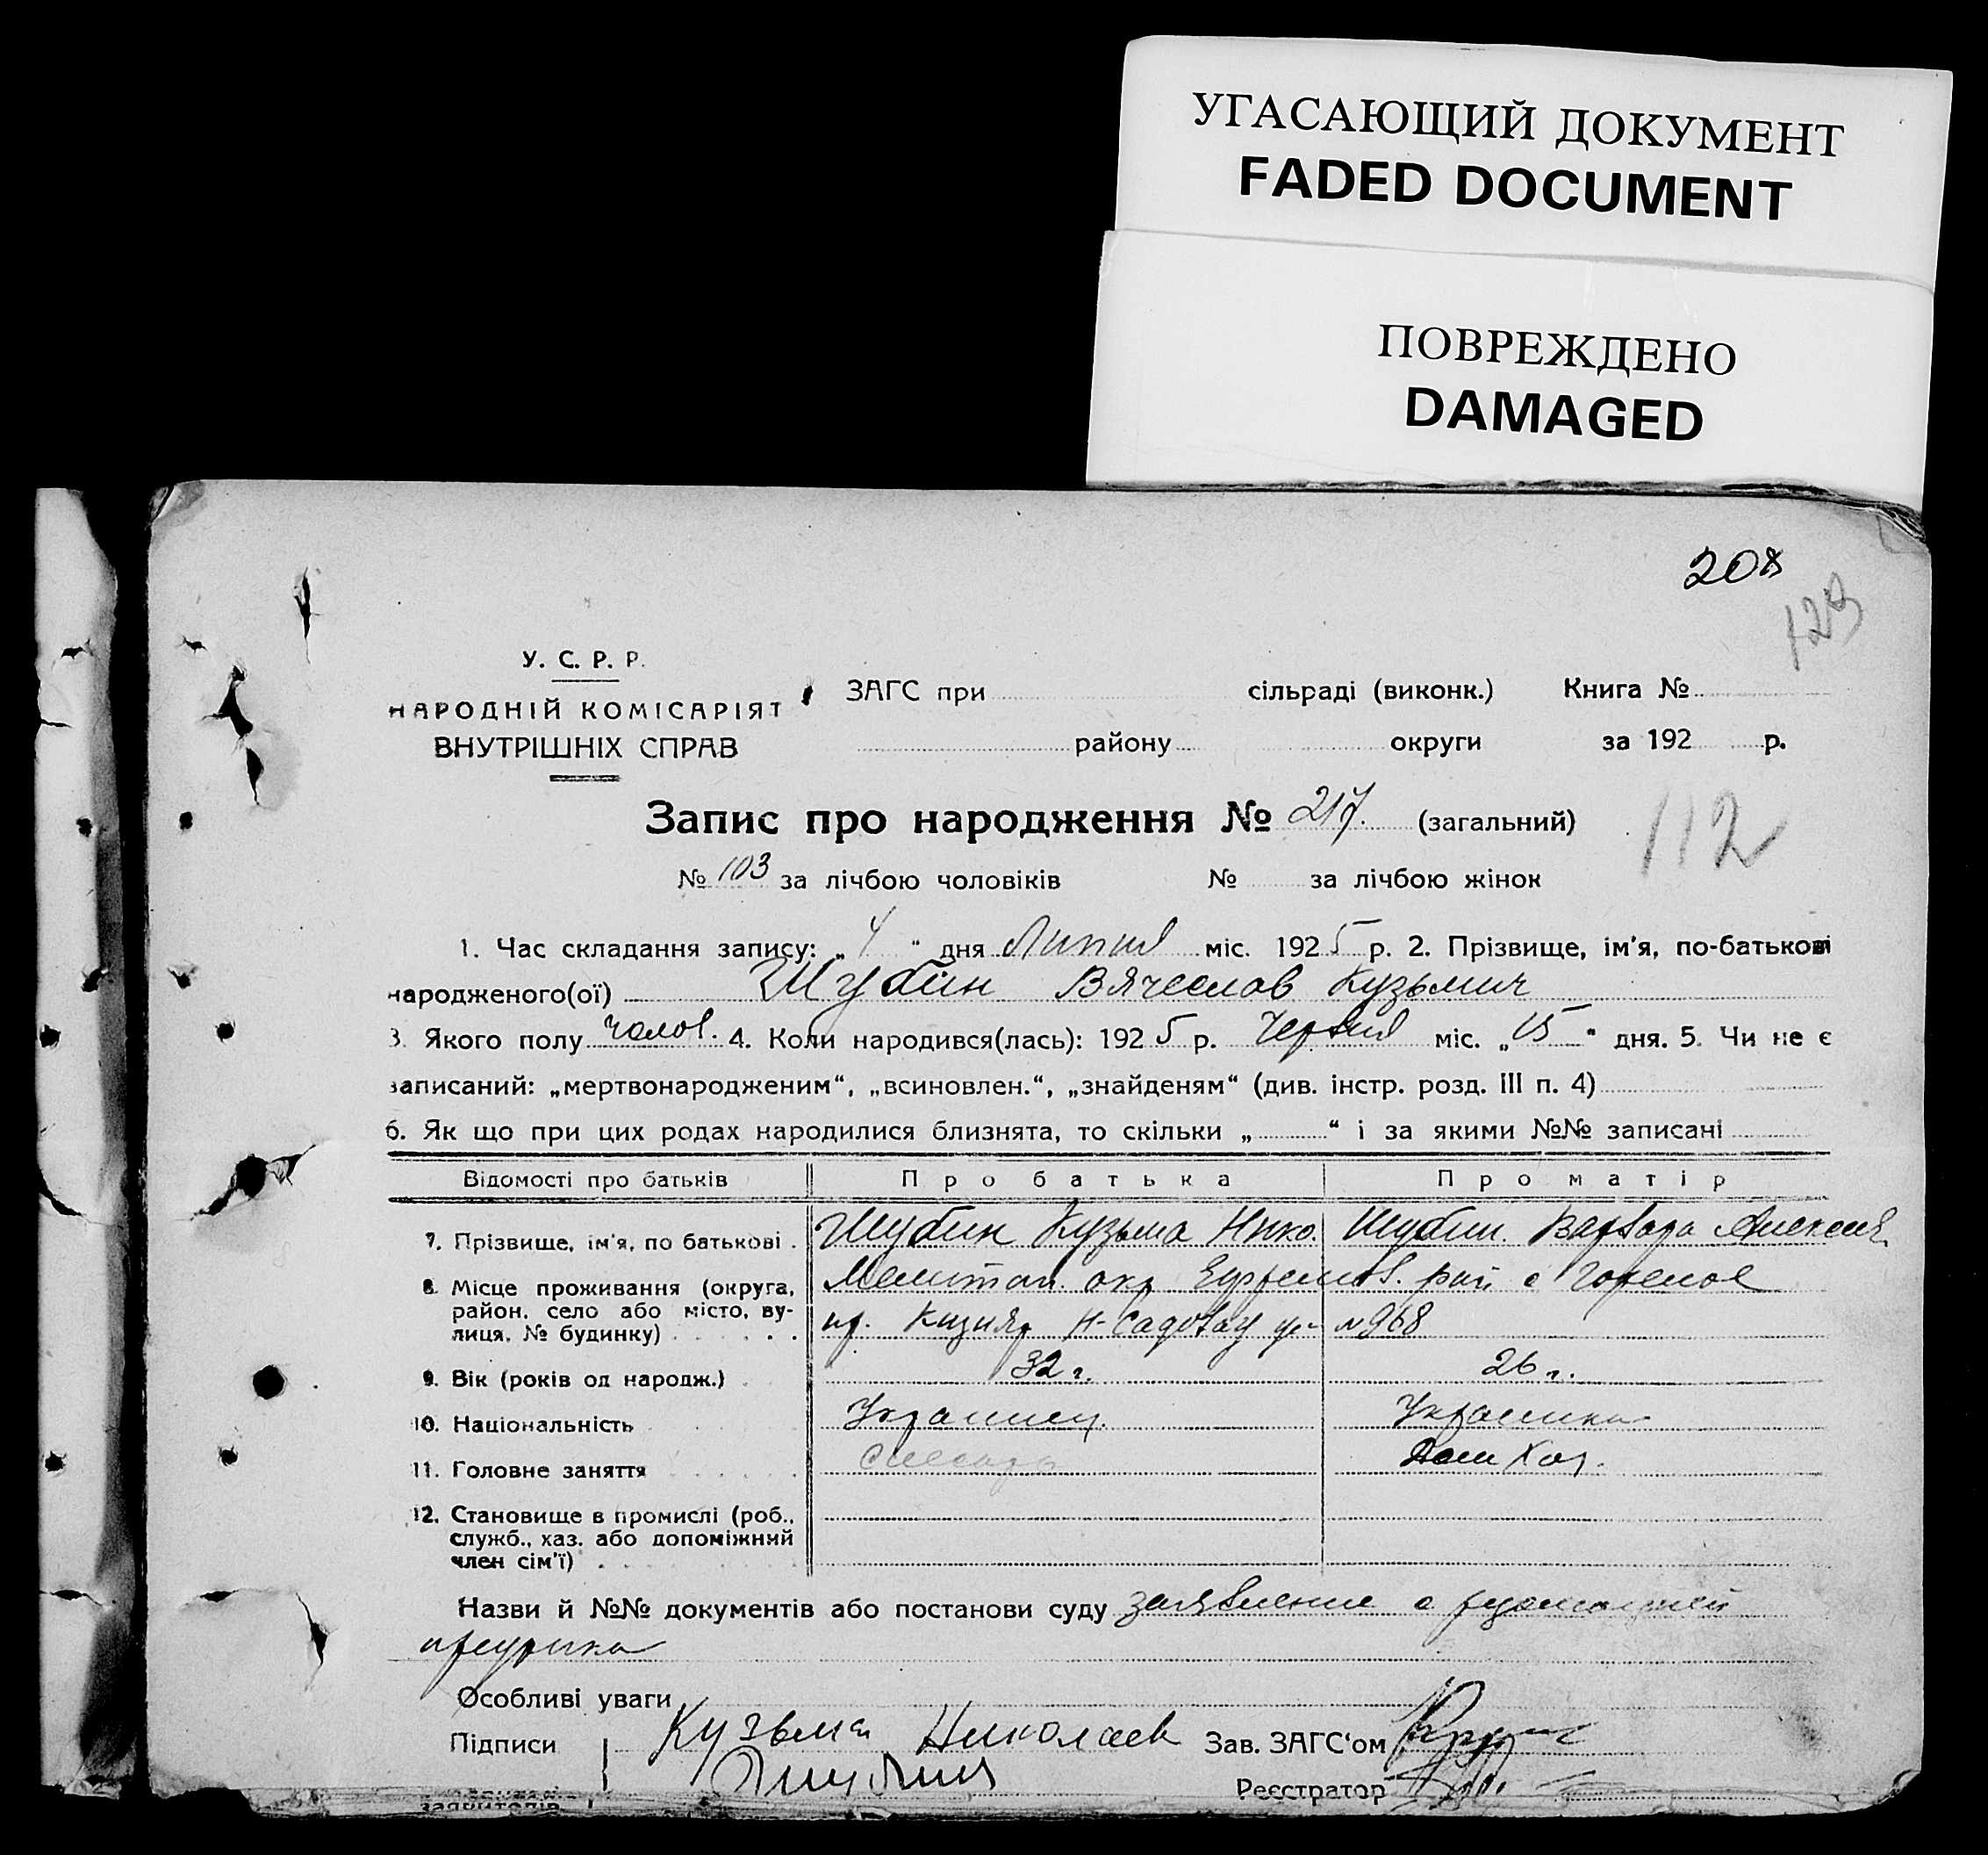 УГАСАЮЩИЙ ДОКУМЕНТ
FADED DOCUMENT
ПОВРЕЖДЕНО
DAMAGED
208
123
У. С. Р. Р.
НАРОДНІЙ КОМІСАРІЯТ
ВНУТРІШНІХ СПРАВ
ЗАГС при сільраді (виконк.) Книга №
району округи за 192 р.
Запис про народження № 217. (загальний)
112
№ 103 за лічбою чоловіків № за лічбою жінок
1. Час складання запису: „4“ дня Липня міс. 1925 р. 2. Прізвище, ім'я, по-батькові
народженого(ої) Шубин Вячеслав Кузьмич
3. Якого полу чолов. 4. Коли народився(лась): 1925 р. Червня міс. „15“ дня. 5. Чи не є
записаний: „мертвонародженим“, „всиновлен.“, „знайденям“ (див. інстр. розд. III п. 4)
6. Як що при цих родах народилися близнята, то скільки „ “ і за якими №№ записані
Відомості про батьків Про батька Про матір
7. Прізвище, ім'я, по батькові Шубин Кузьма Нико. Шубин. Варвара Алексея.
8. Місце проживання (округа, район, село або місто, вулиця, № будинку) Мелитоп. окр
Н-Садовая ул N968
9. Вік (років од народж.) 32 г. 26 г.
10. Національність Украинец. Украинка
11. Головне заняття слесарь Дом Хоз.
12. Становище в промислі (роб.,
служб., хаз. або допоміжний
член сім'ї)
Назви й №№ документів або постанови суду заявление о
Особливі уваги
Підписи Кузьма Николаев Зав. ЗАГС'ом
Шубин Реєстратор
заявителів